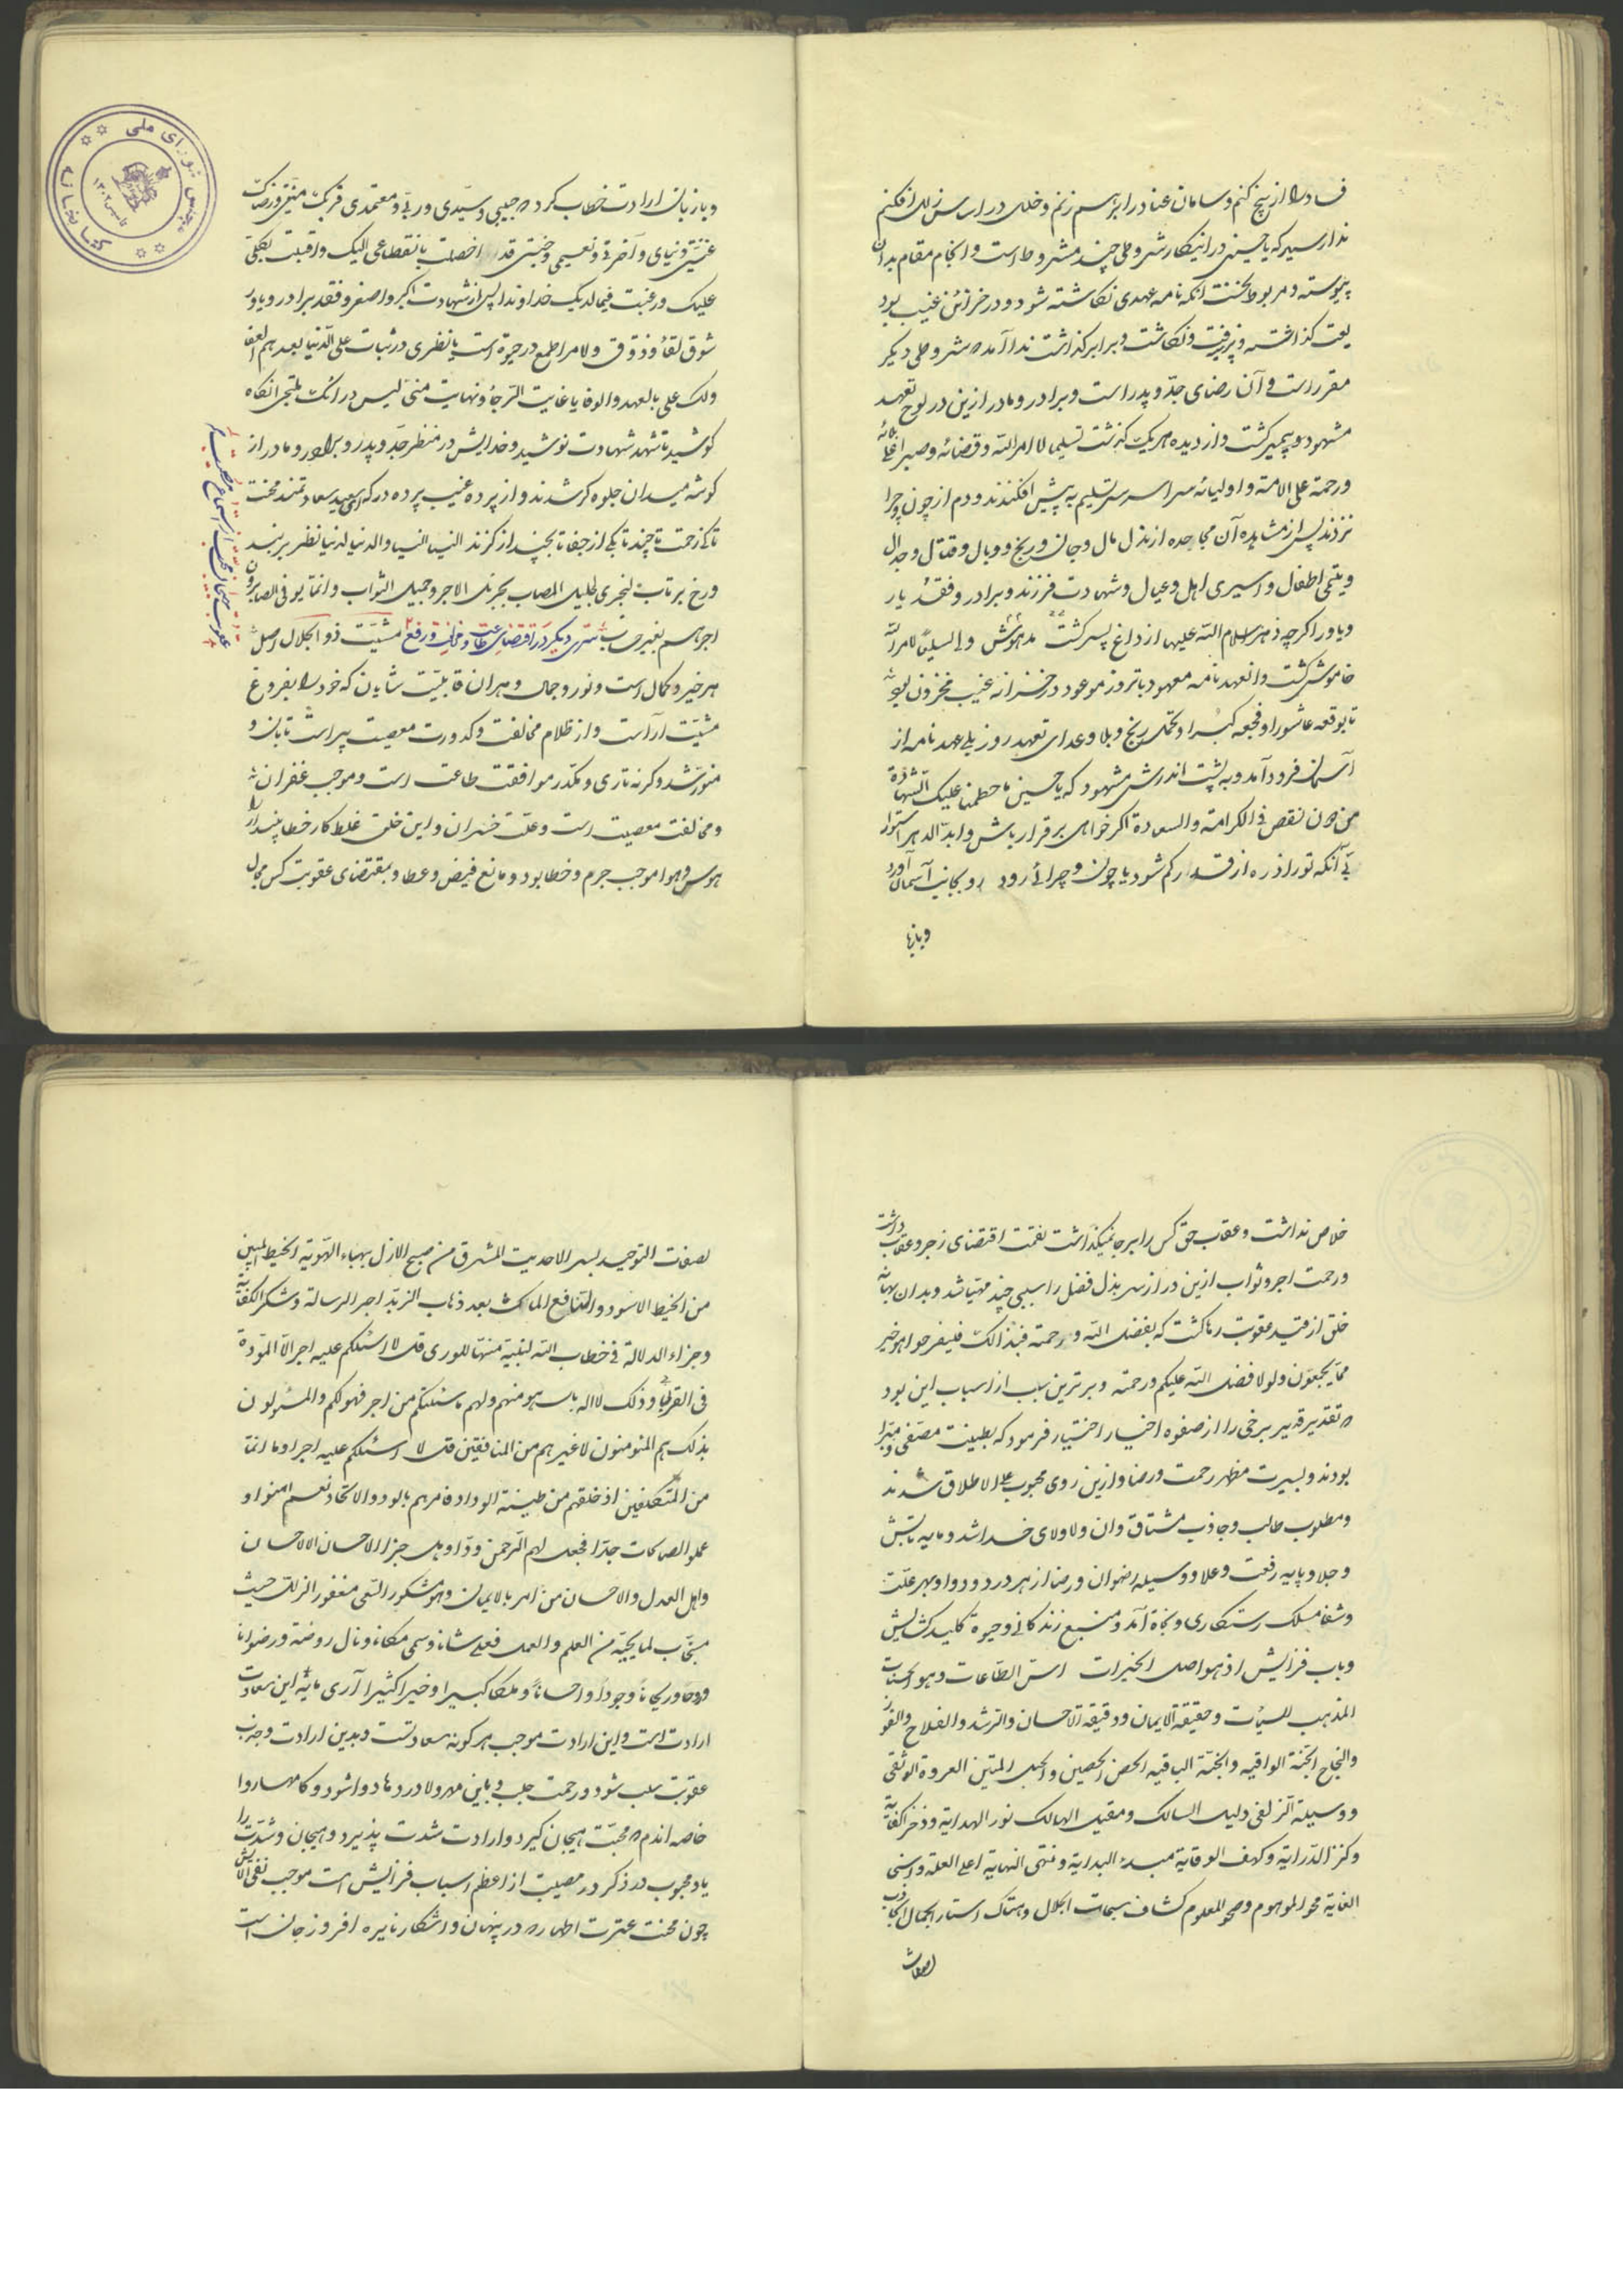 فساد را از بیخ کنم و سامان عناد را برهم زنم و خللی در اساس زلل افکنم
ندا رسید که یا حسین در اینکار شروطی چند مشروط است و انجام مقام بدان
پیوسته و مربوط نخست آنکه نامه عهدی نگاشته شود و در خزائن غیب بود
یعت گذاشته و پذیرفت و نگاشت و برابر گذاشت ندا آمد که شروطی دیگر
مقرر است و آن رضای جد و پدر است و برادر و مادر ازین در لوح تعهد
مشهود و پیمبر گشت و از دیده هر یک گذشت تسلیما لامر الله و قضائه و صبرا علی بلائه
ورحمة علی الامة و اولیائه سراسر سر تسلیم به پیش افکندند و دم از چون و چرا
نزدند پس از مشاهده آن مجاهده از بذل مال و جان و رنج و وبال و قتال و جدال
ویتیمی اطفال و اسیری اهل و عیال و شهادت فرزند و برادر و فقد یار
ویاور اگرچه زهرا سلام الله علیها از داغ پسر گشت مدهوش ولی تسلیما لامر الله
خاموش گشت و آنعهد نامه معهود تا بروز موعود در خزانه غیب مخزون بود
تا بوقعه عاشورا و فجعه کبرا و تحمل رنج و بلا و عدای تعهد روز بلی عهد نامه از
آسمان فرود آمد و به پشت اندرش مشهود که یا حسین ما حطمنا علیک الشهادة
من دون نقص فی الکرامة والسعادة اگر خواهی برقرار باش و ابد الدهر استوار
بی آنکه تو را ذره از قدر کم شود یا چون و چرائی رود رو بجانب آسمان آورد
وبازبا
وبازبان ارادت خطاب کرد که حبیبی و سیدی و ربی و معتمدی قربک منیتی و رضاک
غنیتی و دنیای و آخرتی و نعیمی و جنتی قد اخصلت بانقطاعی الیک و اقبلت بکلی
علیک ورغبت فیما لدیک خداوندا پس از شهادت اکبر و اصغر و فقد برادر و یاور
شوق لقا و ذوق ولا مرا طمع در حیوة است یا نظری در ثبات علی الدنیا بعدهم العفا
ولک علی بالعهد والوفا یا غایت الرجا و نهایت منی الیس در انک بلتجی آنگاه
کوشید تا شهد شهادت نوشید و خدایش در منظر جد و پدر و برادر و مادر از
گوشه میدان جلوه گر شدند و از پرده غیب پرده در که ای سعید سعادتمند محنت
تا کی زحمت تا چند تا بکی از جفا تا بچند از گزند الینا الینا والدنیا لدنیا نظر بر بند
ورخ برتاب لنجزی لجلیل المصاب بجزیل الاجر و جمیل الثواب وانما یوفی الصابرون
اجرهم بغیر حساب سری دیگر در اقتضای طاعت و مخالفت و رفع مشیت ذو الجلال اصل
هر خیر و کمال است و نور و جمال و هر آن قابلیت شایان که خود را بفروغ
مشیت آراست و از ظلام مخالفت و کدورت معصیت پیراست تابان و
منور شد و گرنه تاری و مکدر موافقت طاعت است و موجب غفران
ومخالفت معصیت است و علت خسران و این خلق غلط کار خطا پندار را
هوس و هوا موجب جرم و خطا بود و مانع فیض و عطا و بمقتضای عقوبت کس مجال
خلاص نداشت و عقاب حق کس را بر جا نمیگذاشت نقمت اقتضای زجر و عقاب داشت
ورحمت اجر و ثواب ازین در از سر بذل فضل را سببی چند مهیا شد و بدان بهانه
خلق از قید عقوبت رها گشت که بفضل الله و رحمته فبذالک فلیفرحوا هو خیر
مما یجمعون ولولا فضل الله علیکم ورحمته و برترین سبب از اسباب این بود
که تقدیر قدیر برخی را از صفوه اخیار اختیار فرمود که بطینت مصفی و مبرا
بودند و بسیرت مظهر رحمت و رضا و ازین روی محبوب علی الاطلاق شدند
ومطلوب طالب و جاذب مشتاق و آن ولا ولای خدا شد و مایه تابش
وجلا و پایه رفعت و علا و وسیله رضوان و رضا از هر درد دوا و بهر علت
وشفا مسلک رستگاری و نجاة آمد و منبع زندگانی و حیوة کلید گشایش
وباب فزایش اذ هو اصل الخیرات اس الطاعات وهو الحسنات
المذهب للسیئات و حقیقة الایمان و دقیقة الاحسان والرشد والفلاح والفوز
والنجاح الجنة الواقیه والجنة الباقیه الحصن الحصین والحبل المتین العروة الوثقی
ووسیلة الزلفی دلیل السالک ومقیل الهالک نور الهدایة وذخر الکفایة
وکنز الدرایة وکهف الوقایة مبدء البدایة ومنتهی النهایة اعلی العلة وسنی
الغایة محو الموهوم وصحو المعلوم کشاف سبحات الجلال وهتاک استار الجمال الجاذب
لصفات التوحید بسر الاحدیت المشرق من صبح الازل بهباء الهویة الخیط المبین
من الخیط الاسود والنافع الماکث بعد ذهاب الزبد اجر الرسالة وشکر الکفایة
وجزاء الدلالة فی خطاب الله لنبیه منتها للوری قل لا اسئلکم علیه اجرا الا المودة
فی القربی وذلک لا اله بل هو منهم ولهم ما سئلتکم من اجر فهو لکم والمسئولون
بذلک هم المؤمنون لا غیرهم من المنافقین قل لا اسئلکم علیه اجرا وما انا
من المتکلفین اذ خلقهم من طینة الوداد فامرهم بالود والاتحاد نعم امنوا و
عملوا الصالحات جدا فجعل لهم الرحمن ودا وهل جزا الاحسان الا الاحسان
واهل العدل والاحسان من امر بالایمان وهو مشکور السعی مغفور الزلل حیث
مستجاب لما یحبه من العلم والعمل فعلی شانه وسمی مکانه ونال روضة ورضوانا
وروحا وریحانا وجودا واحسانا وملکا کبیرا وخیرا کثیرا آری مایه این سعادت
ارادت است و این ارادت موجب هر گونه سعادتست و بدین ارادت وجذب
عقوبت سلب شود و رحمت جلب و باین مهر و ولا دردها دوا شود و کامها روا
خاصه آندم که محبت هیجان گیرد و ارادت شدت پذیرد و هیجان و شدت را
یاد محبوب در ذکر در مصیبت از اعظم اسباب فزایش است موجب نفی الایش
چون محنت عترت اطهار که در پنهان و آشکار نایره افروز جان است